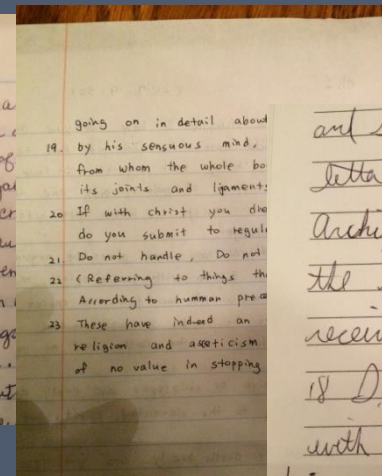 going on in detail about
19. by his sensuous mind,
from whom the whole bo
its joints and ligament
20 If with christ you die
do you submit to regul
21. Do not handle, Do not
22 (Referring to things th
According to humman prece
23 These have indeed an
religion and asceticism
of no value in stopping
and
letta
Archi
the
receiv
18 D
with